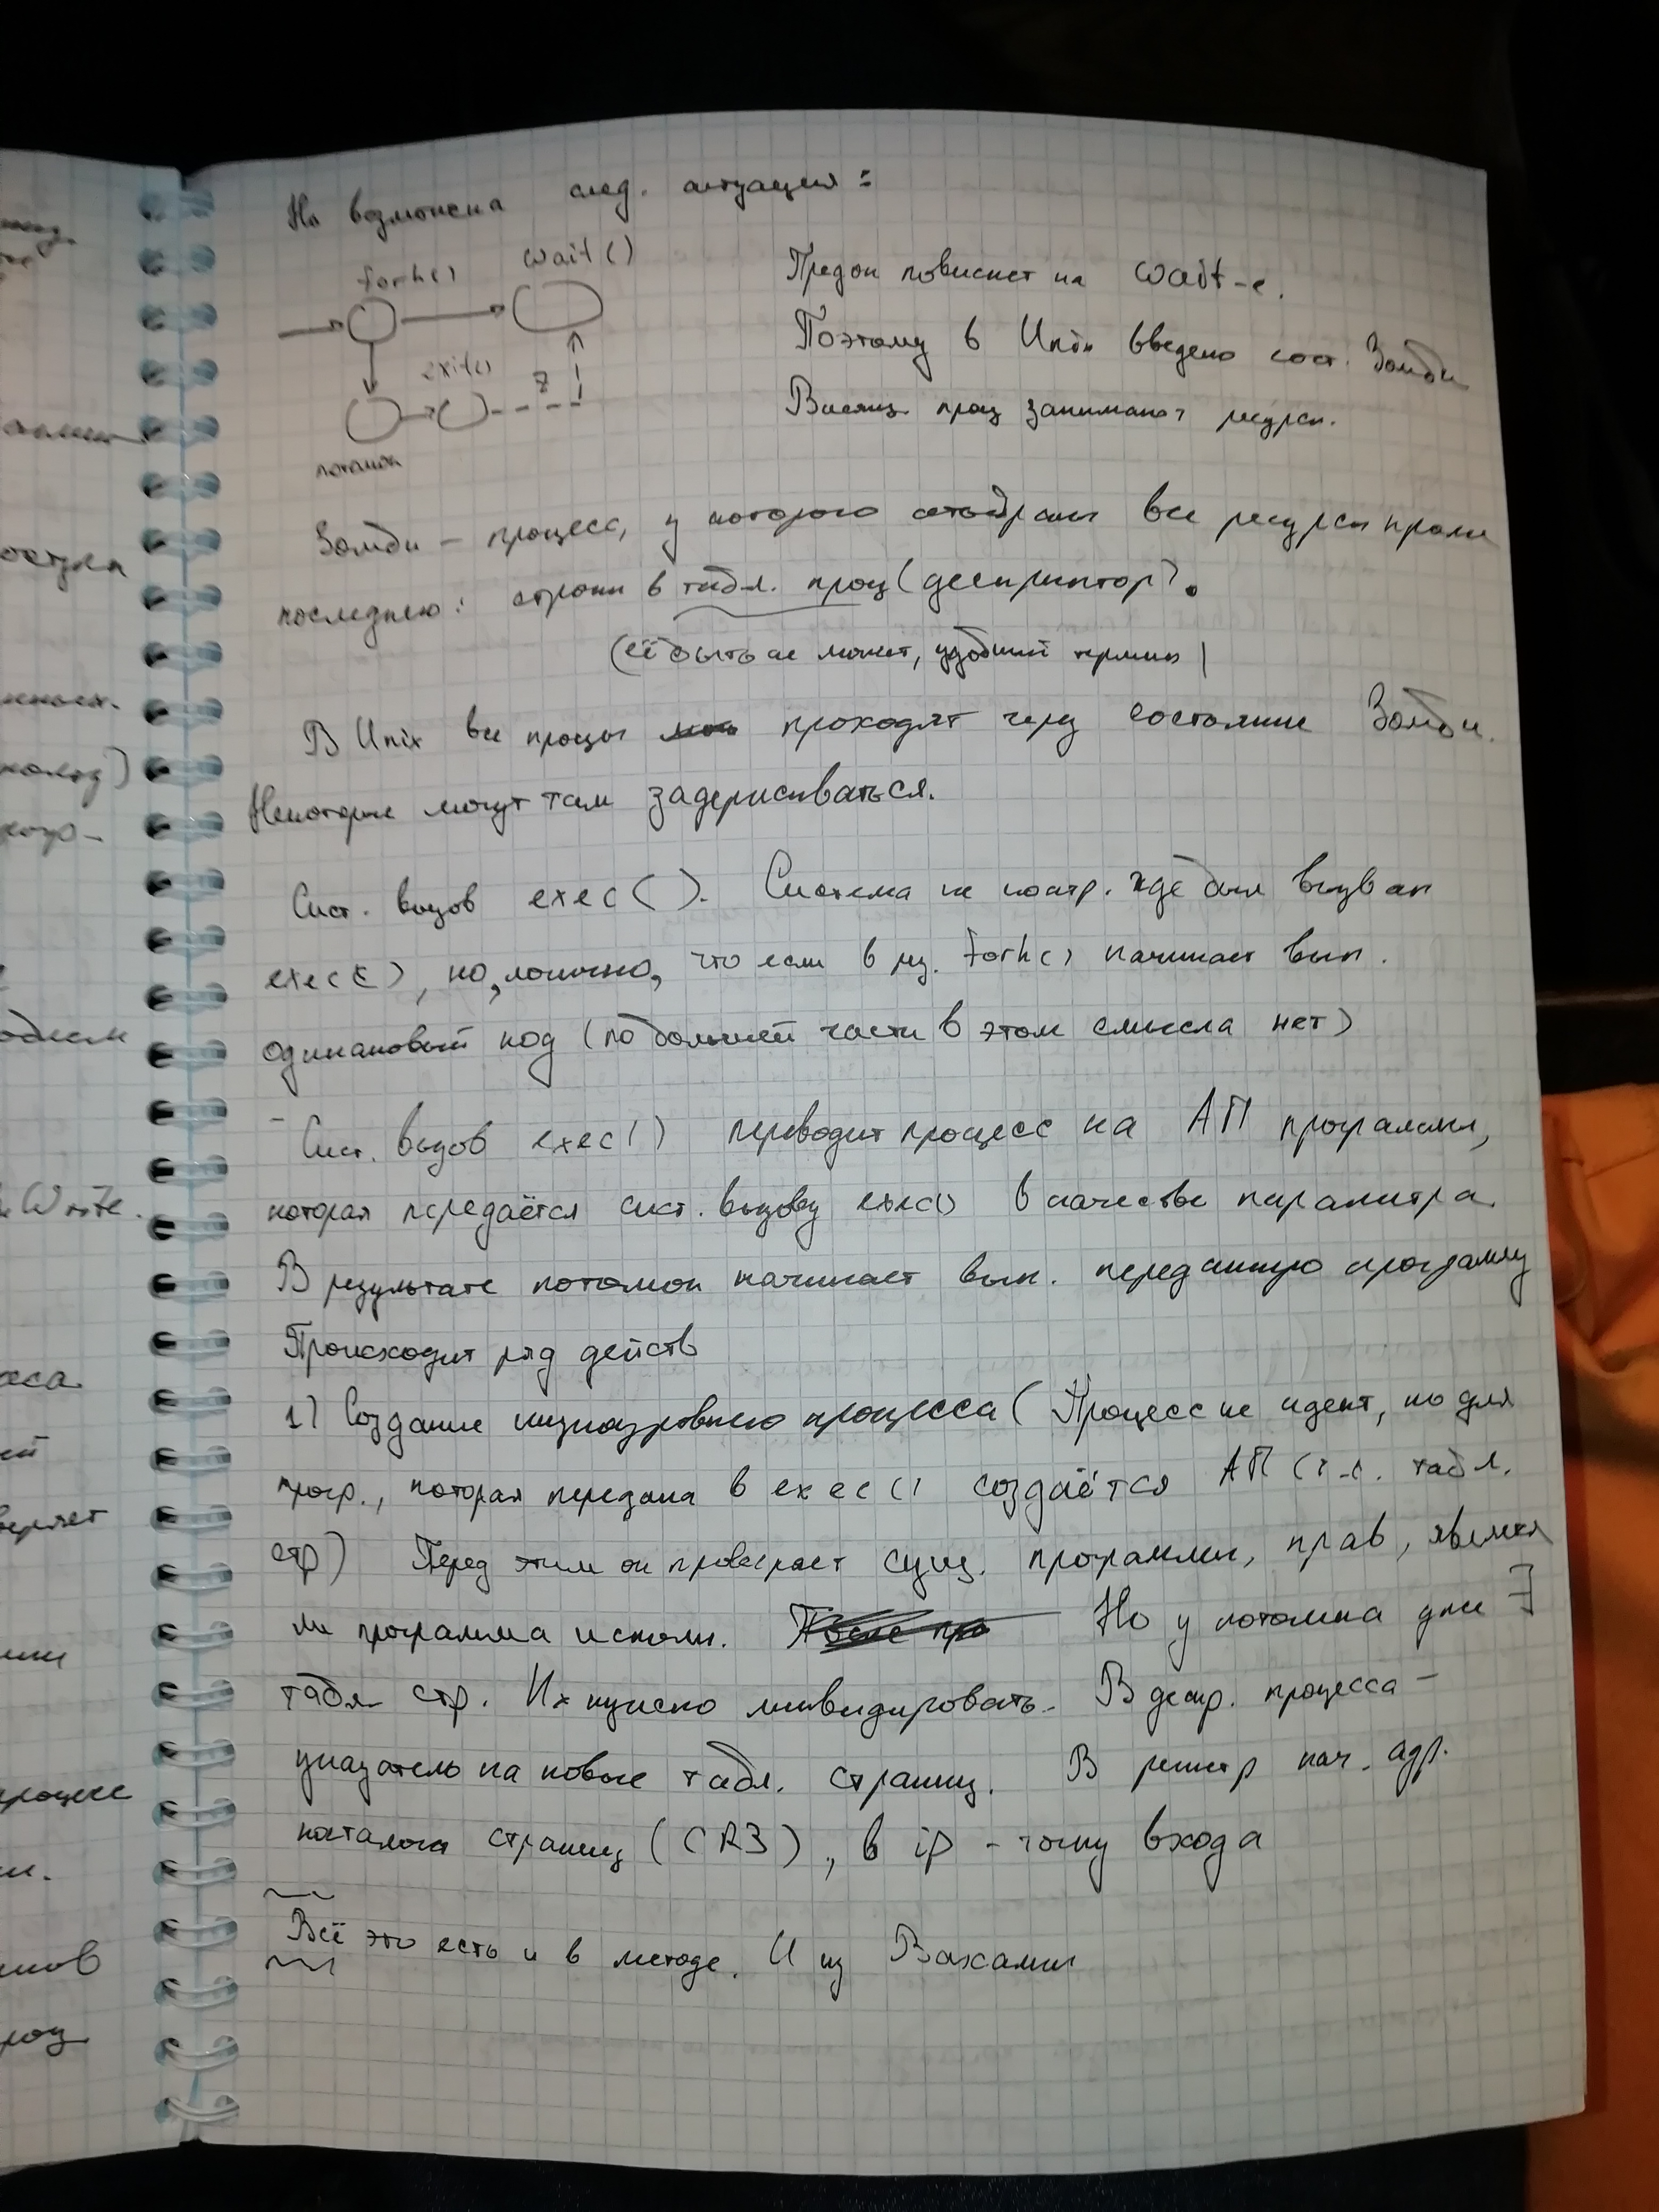 Но возможна след. ситуация:
fork() wait()
exit()
Z
потомок
Предок повиснет на wait-е.
Поэтому в Unix введено сост. Зомби
Висящ. проц занимают ресурсы.
Зомби – процесс, у которого отобраны все ресурсы кроме
последнего: строки в табл. проц (дескриптор).
(её быть не может, удобный термин)
В Unix все процы проходят через состояние Зомби.
Некоторые могут там задерживаться.
Сист. вызов exec(). Система не контр. где был вызван
exec(), но, логично, что если в рез. fork() начинает вып.
одинаковый код (по большей части в этом смысла нет)
Сист. вызов exec() переводит процесс на АП программы,
которая передаётся сист. вызову exec() в качестве параметра.
В результате потомок начинает вып. переданную программу
Происходит ряд действ
1) Создание низкоуровнего процесса (Процесс не идент, но для
прогр., которая передана в exec() создаётся АП (т.е. табл.
стр) Перед этим он проверяет сущ. программы, прав, является
ли программа исполн. Но у потомка уже ∃
табл стр. Их нужно ликвидировать. В дескр. процесса –
указатель на новые табл. страниц. В регистр нач. адр.
каталога страниц (CR3), в ip – точку входа
Всё это есть и в методе. И из Вахалии